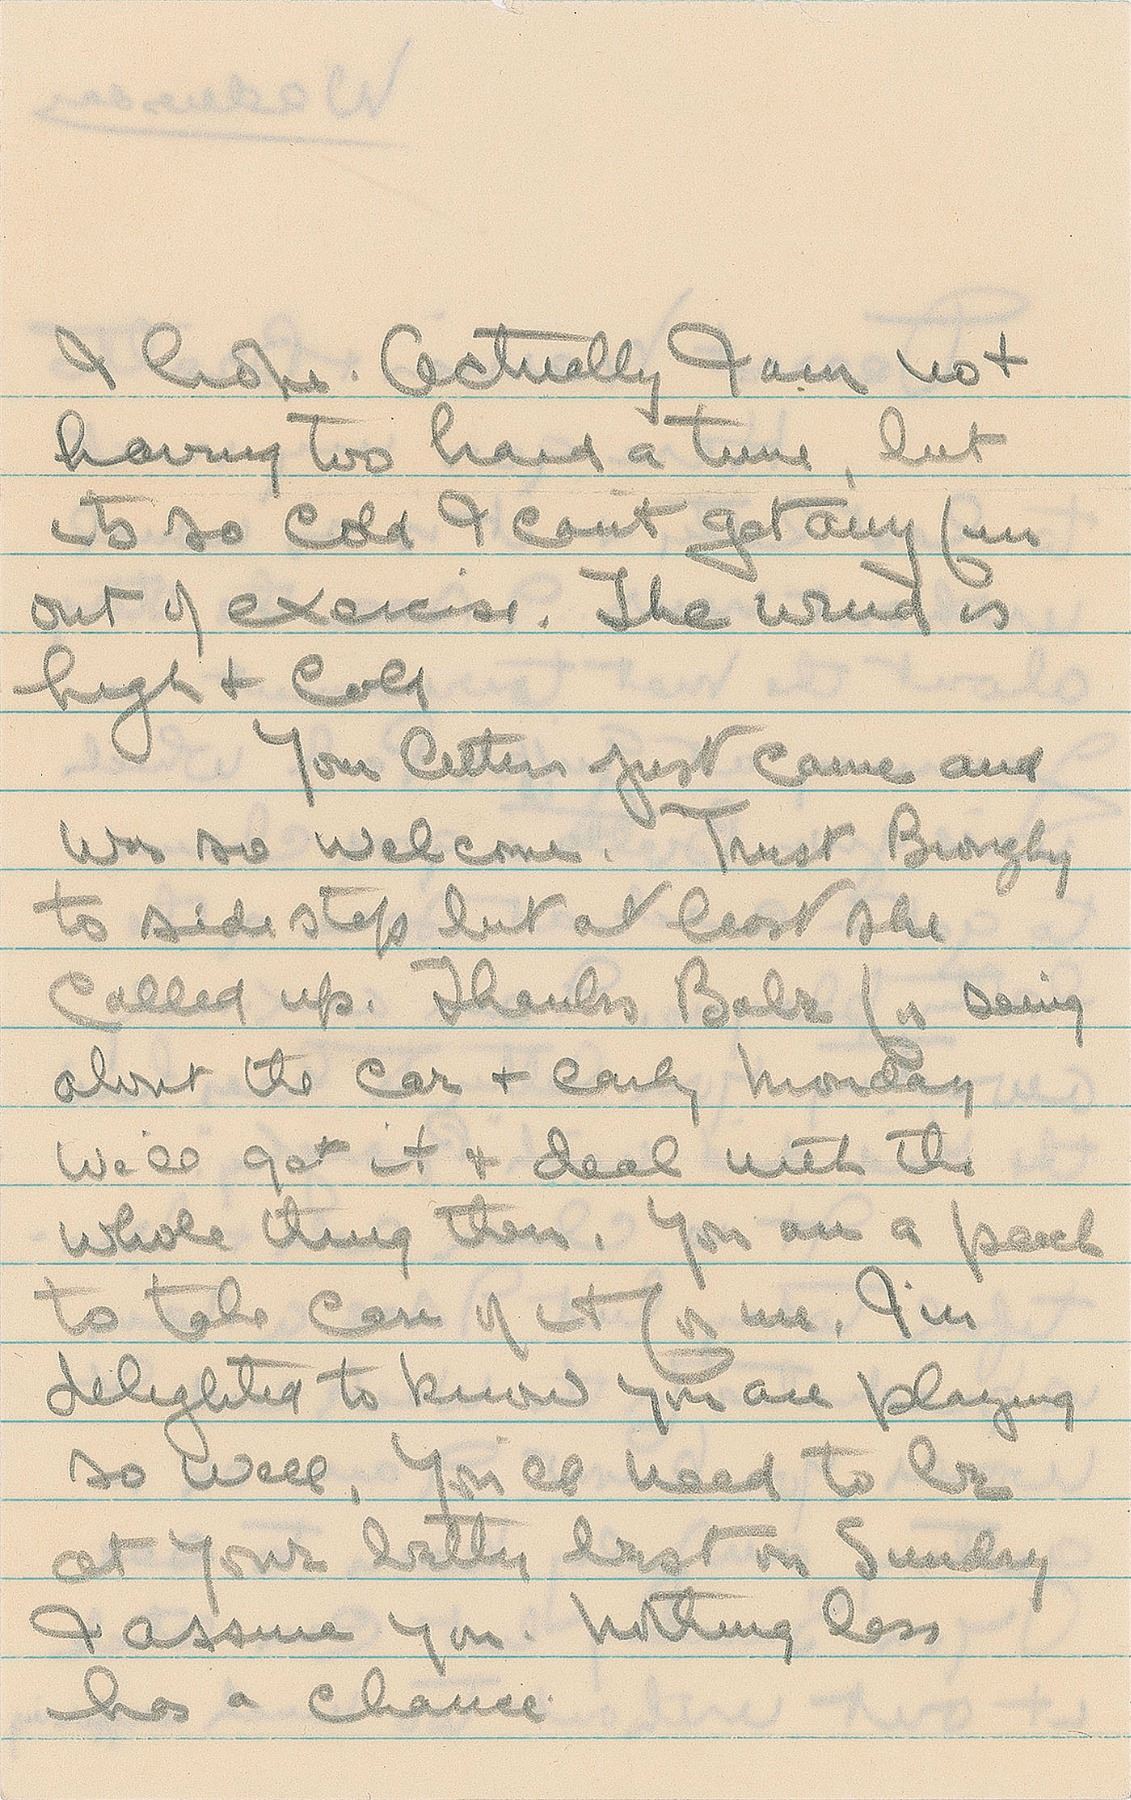 I hope. Actually I am not
having too hard a time, but
its so cold I can't get any fun
out of exercise. The wind is
high + cold
Your letter just came and
was so welcome. Trust
to side step but at least she
called up. Thanks Babe for seeing
about the car + early Monday
will get it + deal with the
whole thing then. You are a peach
to take care of it for me. I'm
delighted to know you are playing
so well. You'll need to be
at your betty best on Sunday
I assume you. Nothing less
has a chance